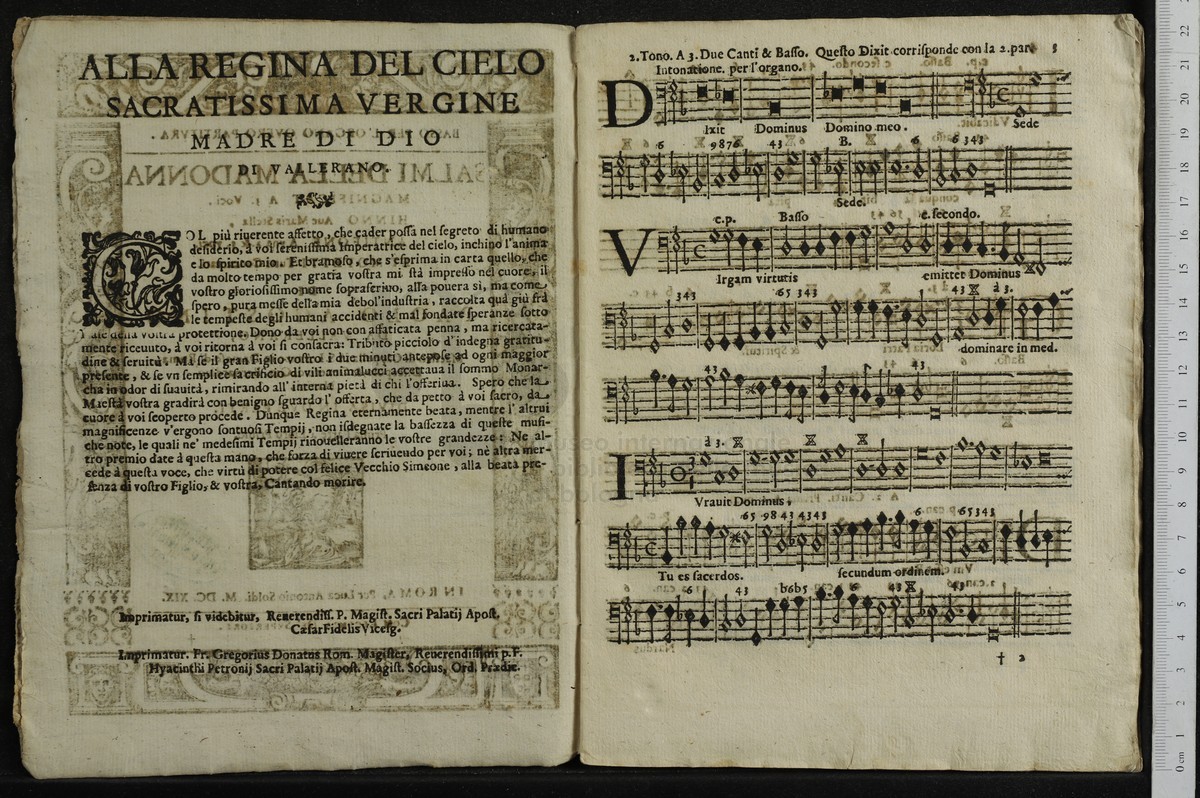 ALLA REGINA DEL CIELO
SACRATISSIMA VERGINE
MADRE DI DIO
DI VALLERANO.
COL più riuerente affetto, che cader possa nel segreto di humano
desiderio, à voi serenissima Imperatrice del cielo, inchino l'anima
e lo spirito mio. Et bramoso, che s'esprima in carta quello, che
da molto tempo per gratia vostra mi stà impresso nel cuore, il
vostro gloriosissimo nome soprascriuo, alla pouera sì, ma come
spero, pura messe della mia debol'industria, raccolta quà giù frà
le tempeste degli humani accidenti & mal fondate speranze sotto
l'ale della vostra protettione. Dono da voi non con affaticata penna, ma ricercata-
mente riceuuto, à voi ritorna à voi si consacra: Tributo picciolo d'indegna gratitu-
dine & seruitù. Mà se il gran Figlio vostro i due minuti antepose ad ogni maggior
presente, & se vn semplice sacrificio di vili animalucci accettaua il sommo Monar-
cha in odor di suauità, rimirando all'interna pietà di chi l'offeriua. Spero che la
Maestà vostra gradirà con benigno sguardo l'offerta, che da petto à voi sacro, da
cuore à voi scoperto procede. Dunque Regina eternamente beata, mentre l'altrui
magnificenze v'ergono sontuosi Tempij, non isdegnate la bassezza di queste musi-
che note, le quali ne' medesimi Tempij rinouelleranno le vostre grandezze: Ne al-
tro premio date à questa mano, che forza di viuere scriuendo per voi; nè altra mer-
cede à questa voce, che virtù di potere col felice Vecchio Simeone, alla beata pre-
senza di vostro Figlio, & vostra, Cantando morire.
Imprimatur, si videbitur, Reuerendiss. P. Magist. Sacri Palatij Apost.
Cæsar Fidelis Vicesg.
Imprimatur. Fr. Gregorius Donatus Rom. Magister, Reuerendissimi p. F.
Hyacinthi Petronij Sacri Palatij Apost. Magist. Socius, Ord. Prædic.
2. Tono. A 3. Due Canti & Basso. Questo Dixit corrisponde con la 2. par. 3
Intonatione. per l'organo.
Dixit Dominus Domino meo. Sede
6 6 9876 43 6 B. 6 6 343
Sede.
c.p. Basso c. secondo.
Virgam virtutis emittet Dominus
343 65 343 43 à 3.
dominare in med.
43 43
à 3.
IVrauit Dominus.
65 98 43 4343 6 65343
Tu es sacerdos. secundum ordinem.
6 43 b6b5 6 43 43
† 2
22
21
20
19
18
17
16
15
14
13
12
11
10
9
8
7
6
5
4
3
2
1
0 cm